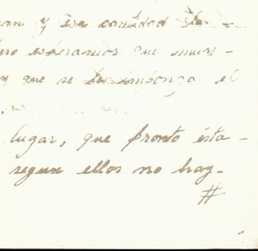 y esa cantidad
esperamos que
y que se le imponga el
lugar, que pronto esta-
segun ellos no hay-
#